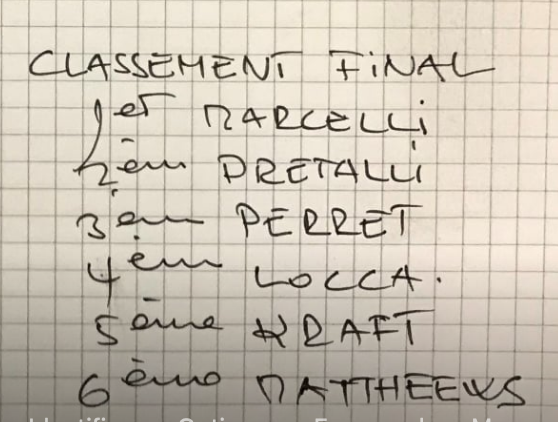 CLASSEMENT FINAL
1er MARCELLI
2èm PRETALLI
3èm PERRET
4èm LOCCA.
5ème KRAFT
6ème MATTHEEWS